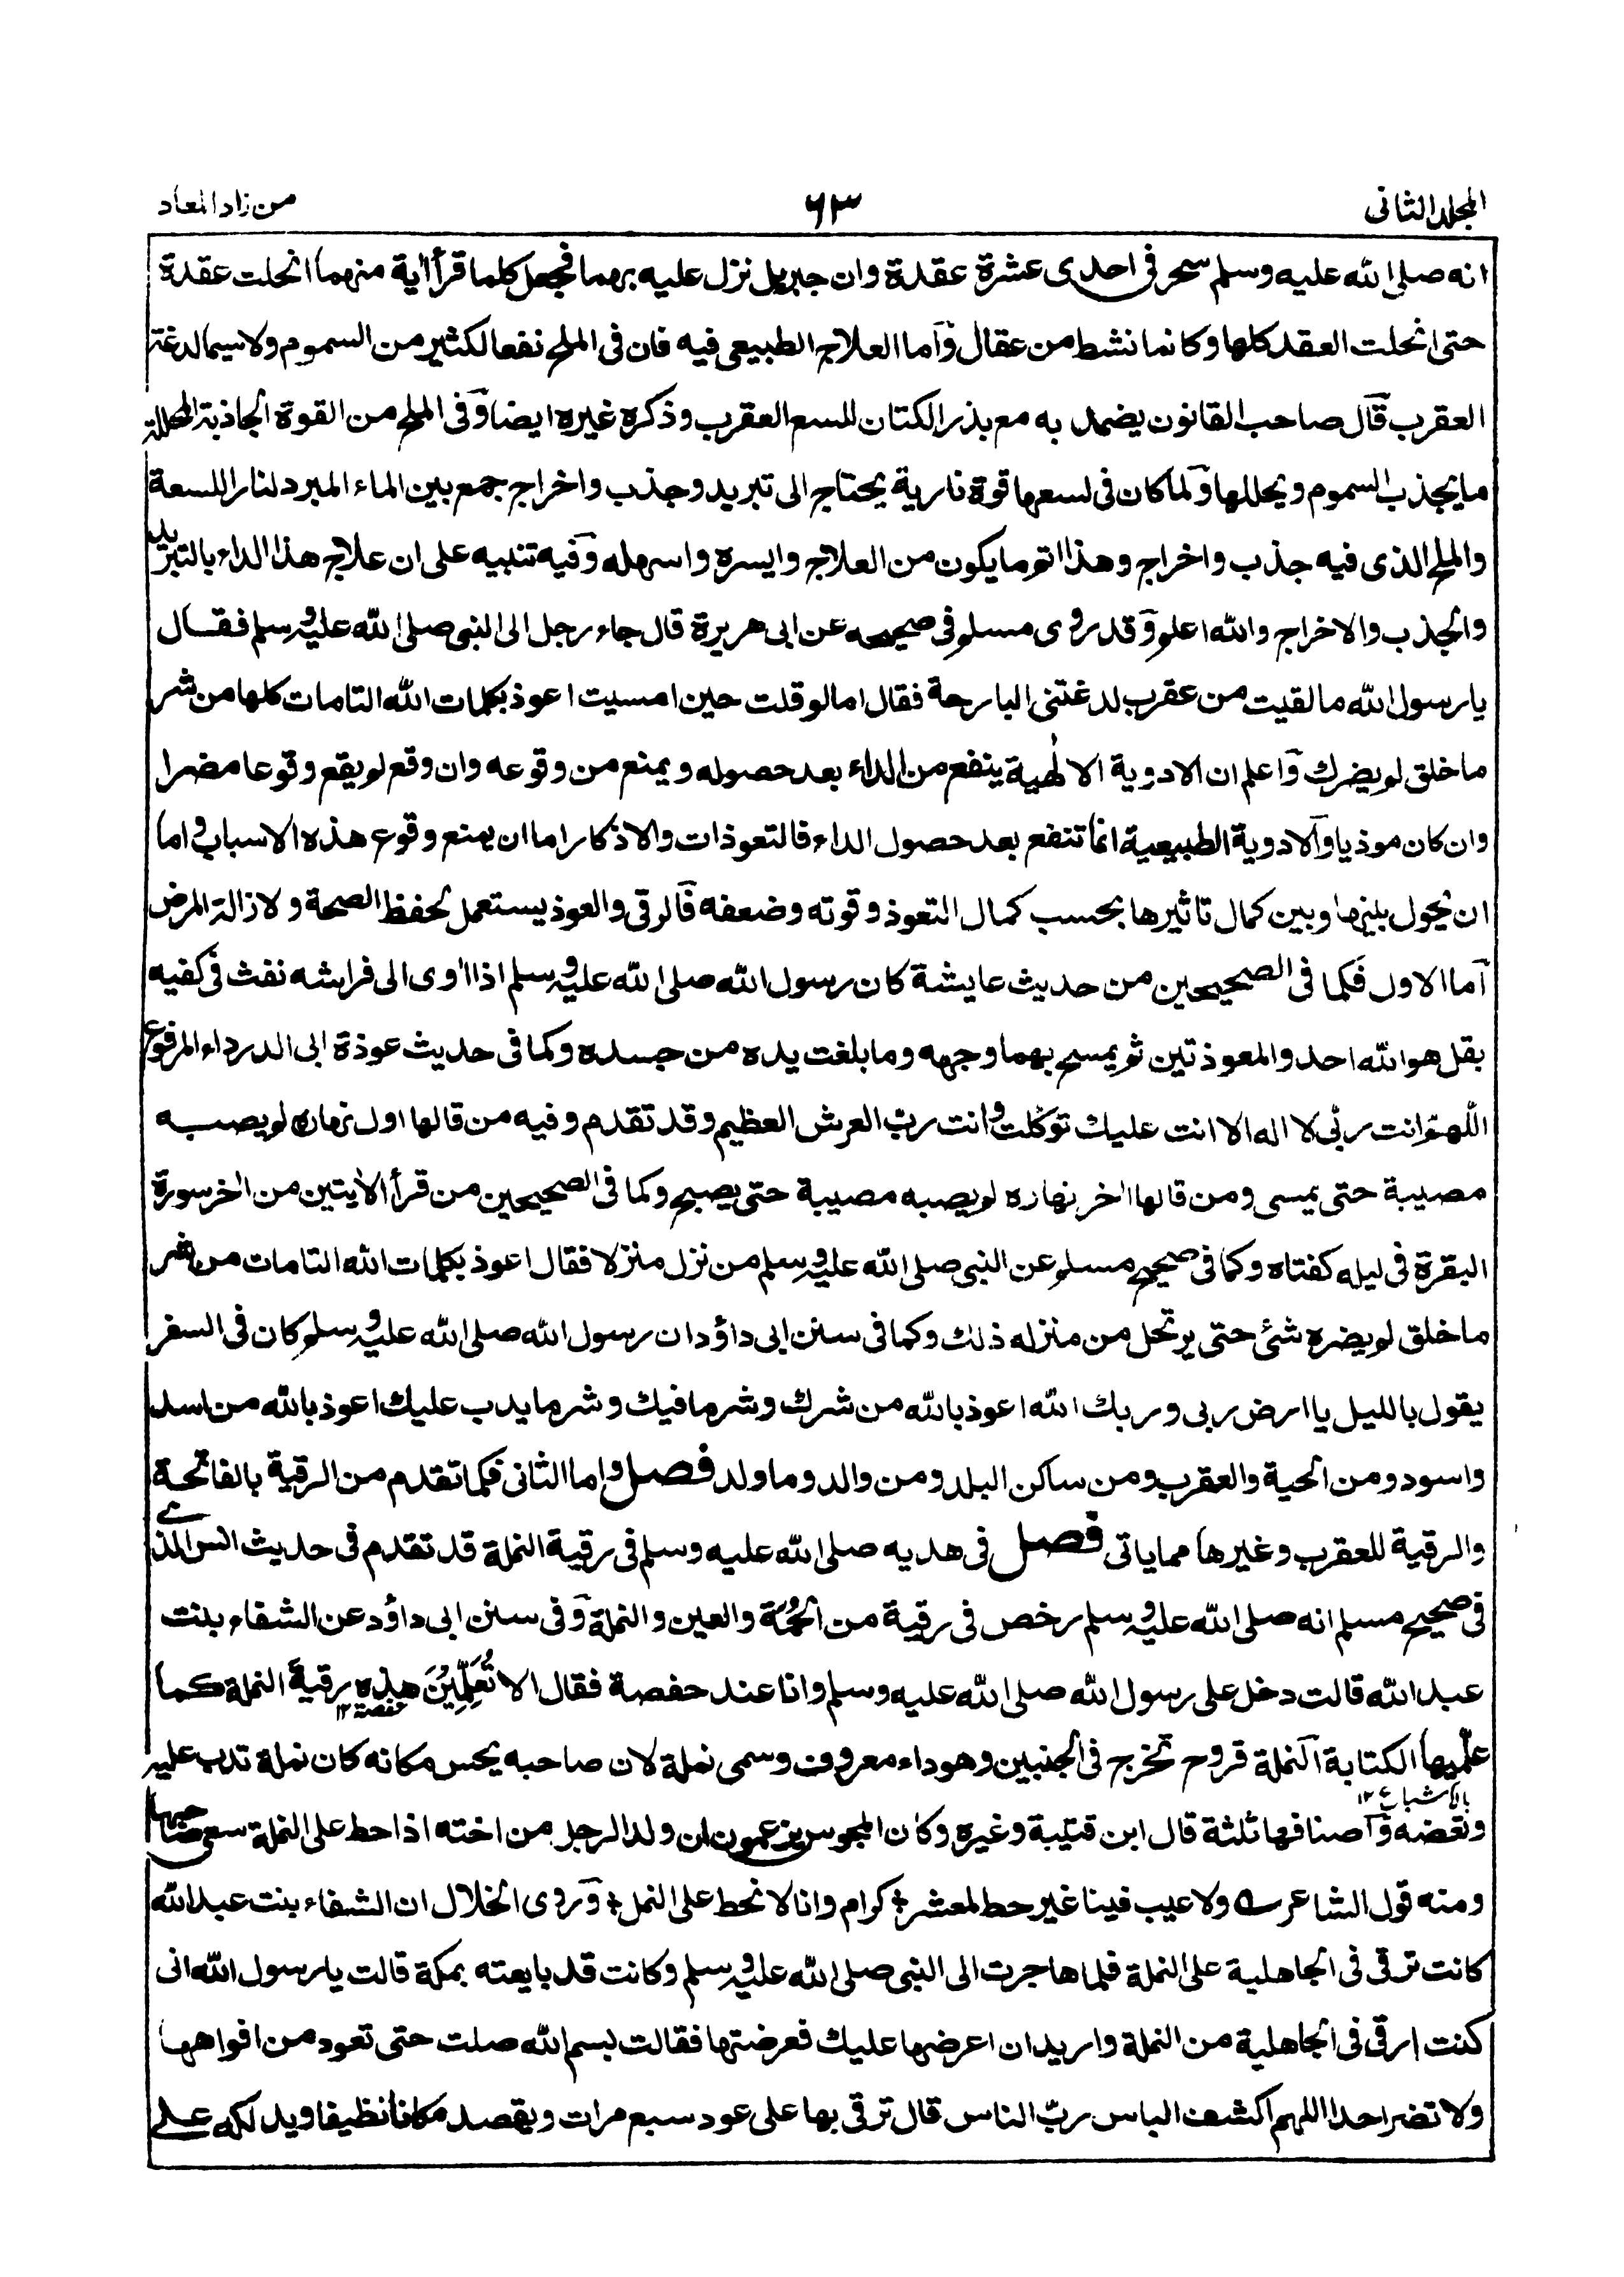 المجلد الثانى
٦٣
من زاد المعاد
انه صلى الله عليه وسلم سحر فى احدى عشرة عقدة وان جبريل نزل عليه بهما فجعل كلما قرأ اٰية منهما انحلت عقدة
حتى انحلت العقد كلها وكانما نشط من عقال وأما العلاج الطبيعى فيه فان فى الملح نفعا لكثير من السموم ولاسيما لدغة
العقرب قال صاحب القانون يضمد به مع بذر الكتان للسع العقرب وذكره غيره ايضا وفى الملح من القوة الجاذبة المحللة
ما يجذب السموم ويحللها ولما كان فى لسعها قوة نارية يحتاج الى تبريد وجذب واخراج جمع بين الماء المبرد لنار اللسعة
والملح الذى فيه جذب واخراج وهذا اتم ما يكون من العلاج وايسره واسهله وفيه تنبيه على ان علاج هذا الداء بالتبريد
والجذب والاخراج والله اعلم وقد روى مسلم فى صحيحه عن ابى هريرة قال جاء رجل الى النبى صلى الله عليه وسلم فقال
يا رسول الله ما لقيت من عقرب لدغتنى البارحة فقال اما لو قلت حين امسيت اعوذ بكلمات الله التامات كلها من شر
ما خلق لم يضرك واعلم ان الادوية الالٰهية ينفع من الداء بعد حصوله ويمنع من وقوعه وان وقع لم يقع وقوعا مضرا
وان كان موذيا والادوية الطبيعية انما تنفع بعد حصول الداء فالتعوذات والاذكار اما ان يمنع وقوع هذه الاسباب واما
ان يحول بينها وبين كمال تاثيرها بحسب كمال التعوذ وقوته وضعفه فالرقى والعوذ يستعمل لحفظ الصحة ولازالة المرض
أما الاول فكما فى الصحيحين من حديث عايشة كان رسول الله صلى الله عليه وسلم اذا اٰوى الى فراشه نفث فى كفيه
بقل هو الله احد والمعوذتين ثم يمسح بهما وجهه وما بلغت يده من جسده وكما فى حديث عوذة ابى الدرداء المرفوع
اللّٰهمّ انت ربّى لا اله الا انت عليك توكلت وانت ربّ العرش العظيم وقد تقدم وفيه من قالها اول نهاره لم يصبه
مصيبة حتى يمسى ومن قالها اٰخر نهاره لم يصبه مصيبة حتى يصبح وكما فى الصحيحين من قرأ الاٰيتين من اٰخر سورة
البقرة فى ليله كفتاه وكما فى صحيح مسلم عن النبى صلى الله عليه وسلم من نزل منزلا فقال اعوذ بكلمات الله التامات من شر
ما خلق لم يضره شئ حتى يرتحل من منزله ذلك وكما فى سنن ابى داؤد ان رسول الله صلى الله عليه وسلم كان فى السفر
يقول بالليل يا ارض ربى وربك الله اعوذ بالله من شرك وشر ما فيك وشر ما يدب عليك اعوذ بالله من اسد
واسود ومن الحية والعقرب ومن ساكن البلد ومن والد وما ولد فصل واما الثانى فكما تقدم من الرقية بالفاتحة
والرقية للعقرب وغيرها مما ياتى فصل فى هديه صلى الله عليه وسلم فى رقية النملة قد تقدم فى حديث انس الذى
فى صحيح مسلم انه صلى الله عليه وسلم رخص فى رقية من الحُمَة والعين والنملة وفى سنن ابى داؤد عن الشفاء بنت
عبد الله قالت دخل على رسول الله صلى الله عليه وسلم وانا عند حفصة فقال الا تُعَلِّمِيْنَ هذِهِ رقيةَ النملة كما
حفصة ١٢
علّمتيها الكتابة النملة قروح تخرج فى الجنبين وهو داء معروف وسمى نملة لان صاحبه يحس مكانه كان نملة تدب عليه
بالاشباع ١٢
وتعضه وأصنافها ثلثة قال ابن قتيبة وغيره وكان المجوس يزعمون ان ولد الرجل من اخته اذا حط على النملة سعى صاحبها
ومنه قول الشاعر ؎ ولا عيب فينا غير حط لمعشر ٭ كرام وانا لا نحط على النمل ٭ وروى الخلال ان الشفاء بنت عبد الله
كانت ترقى فى الجاهلية على النملة فلما هاجرت الى النبى صلى الله عليه وسلم وكانت قد بايعته بمكة قالت يا رسول الله انى
كنت ارقى فى الجاهلية من النملة واريد ان اعرضها عليك فعرضتها فقالت بسم الله صلت حتى تعود من افواهها
ولا تضر احدا اللهم اكشف الباس ربّ الناس قال ترقى بها على عود سبع مرات ويقصد مكانا نظيفا ويدلكه على